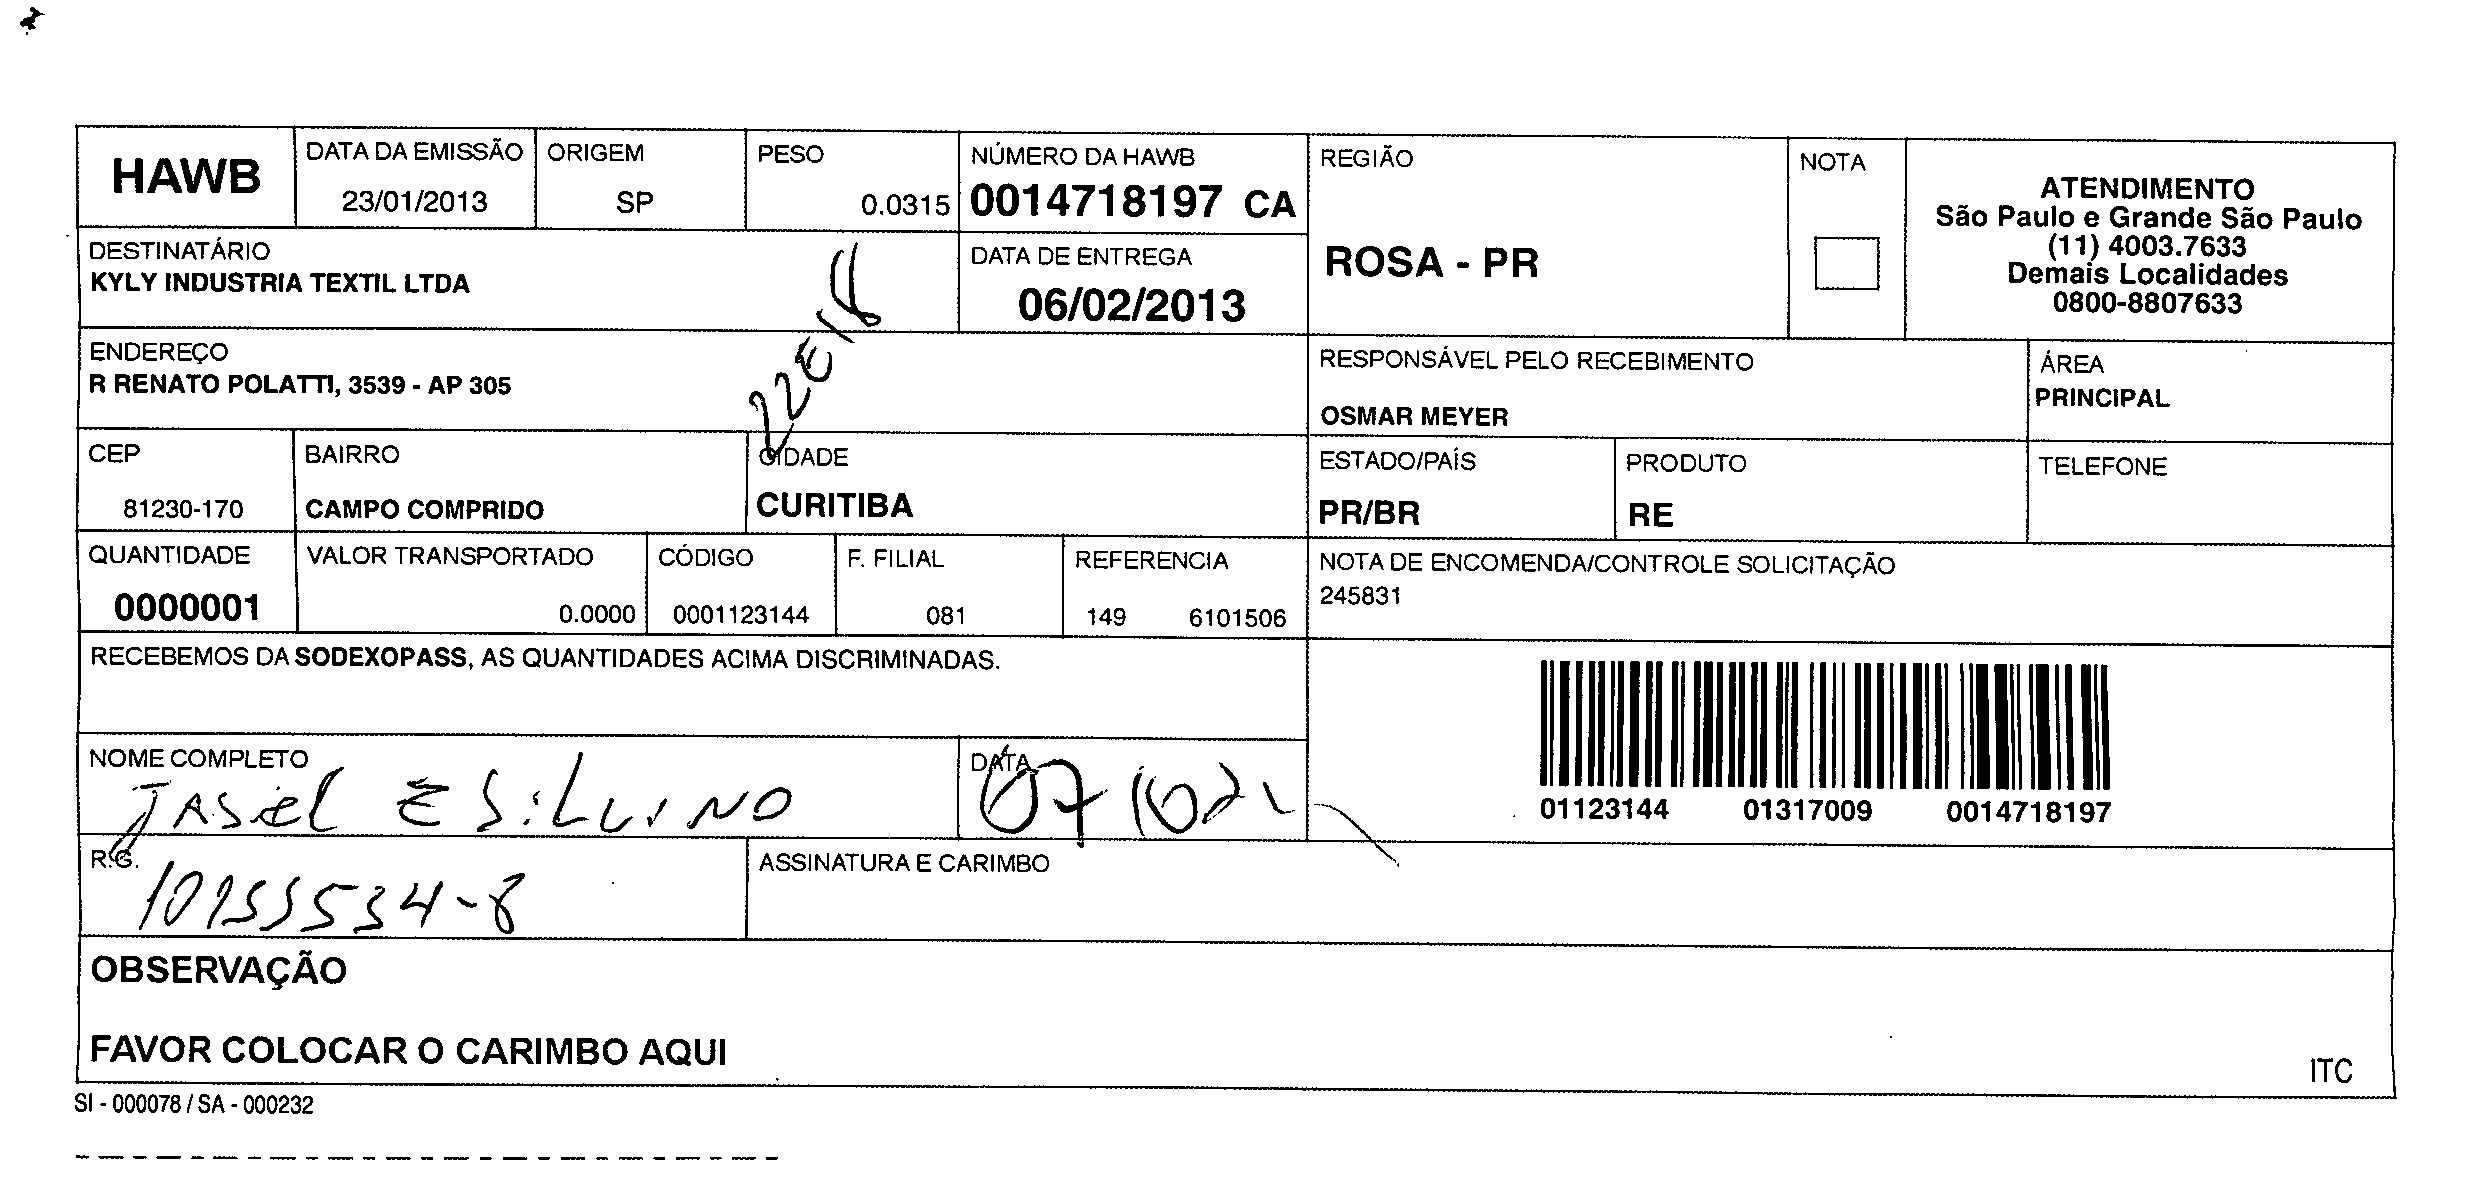 HAWB
DATA DA EMISSÃO
23/01/2013
ORIGEM
SP
PESO
0.0315
NÚMERO DA HAWB
0014718197 CA
REGIÃO
ROSA - PR
NOTA
ATENDIMENTO
São Paulo e Grande São Paulo
(11) 4003.7633
Demais Localidades
0800-8807633
DESTINATÁRIO
KYLY INDUSTRIA TEXTIL LTDA
DATA DE ENTREGA
06/02/2013
ENDEREÇO
R RENATO POLATTI, 3539 - AP 305
RESPONSÁVEL PELO RECEBIMENTO
OSMAR MEYER
ÁREA
PRINCIPAL
CEP
81230-170
BAIRRO
CAMPO COMPRIDO
CIDADE
CURITIBA
ESTADO/PAÍS
PR/BR
PRODUTO
RE
TELEFONE
QUANTIDADE
0000001
VALOR TRANSPORTADO
0.0000
CÓDIGO
0001123144
F. FILIAL
081
REFERENCIA
149 6101506
NOTA DE ENCOMENDA/CONTROLE SOLICITAÇÃO
245831
RECEBEMOS DA SODEXOPASS, AS QUANTIDADES ACIMA DISCRIMINADAS.
NOME COMPLETO
JASIEL E SILVINO
DATA
01123144 01317009 0014718197
R.G.
10155534-8
ASSINATURA E CARIMBO
OBSERVAÇÃO
FAVOR COLOCAR O CARIMBO AQUI
ITC
SI - 000078 / SA - 000232